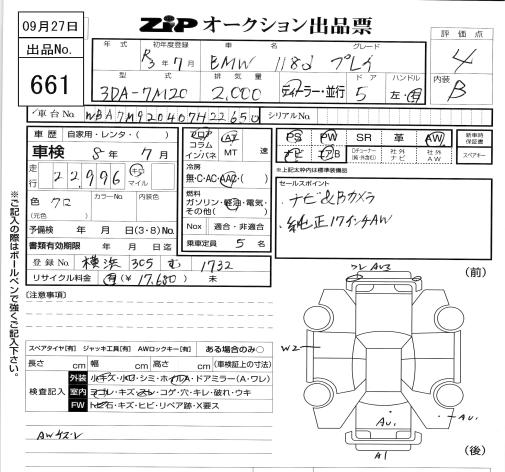 09月27日
出品No.
661
ZiP オークション出品票
年式 初年度登録 車名 グレード
R3年7月 BMW 118d プレイ
型式 排気量 ドア ハンドル
3DA-7M20 2,000 ディーラー・並行 5 左・右
評価点
4
内装
B
車台No. WBA7M920407H22650 シリアルNo.
車歴 自家用・レンタ・( )
車検 8年 7月
走行 22,996 キロ マイル
色 クロ カラーNo. 内装色
(元色)
予備検 年 月 日(3・8)No.
書類有効期限 年 月 日迄
登録No. 横浜 305 む 1732
リサイクル料金 有(¥17,680) 未
フロア コラム インパネ AT MT 速
冷房
無・C・AC・AAC・( )
燃料
ガソリン・軽油・電気・その他( )
Nox 適合・非適合
乗車定員 5 名
PS PW SR 革 AW
ナビ エアB Dチューナー 社外ナビ 社外AW
新車時保証書
スペアキー
*上記太枠内は標準装備品
セールスポイント
・ナビ&Bカメラ
・純正17インチAW
※ご記入の際はボールペンで強くご記入下さい。
[注意事項]
スペアタイヤ[有] ジャッキ工具[有] AWロックキー[有] ある場合のみ○
長さ cm 幅 cm 高さ cm (車検証上の寸法)
検査記入
外装 小キズ・小凹・シミ・ホイルA・ドアミラー(A・ワレ)
室内 ヨゴレ・キズ・スレ・コゲ・穴・キレ・破れ・ウキ
FW トビ石・キズ・ヒビ・リペア跡・X要ス
AWキズ・レ
(前)
W2
AU1
AU1
A1
(後)